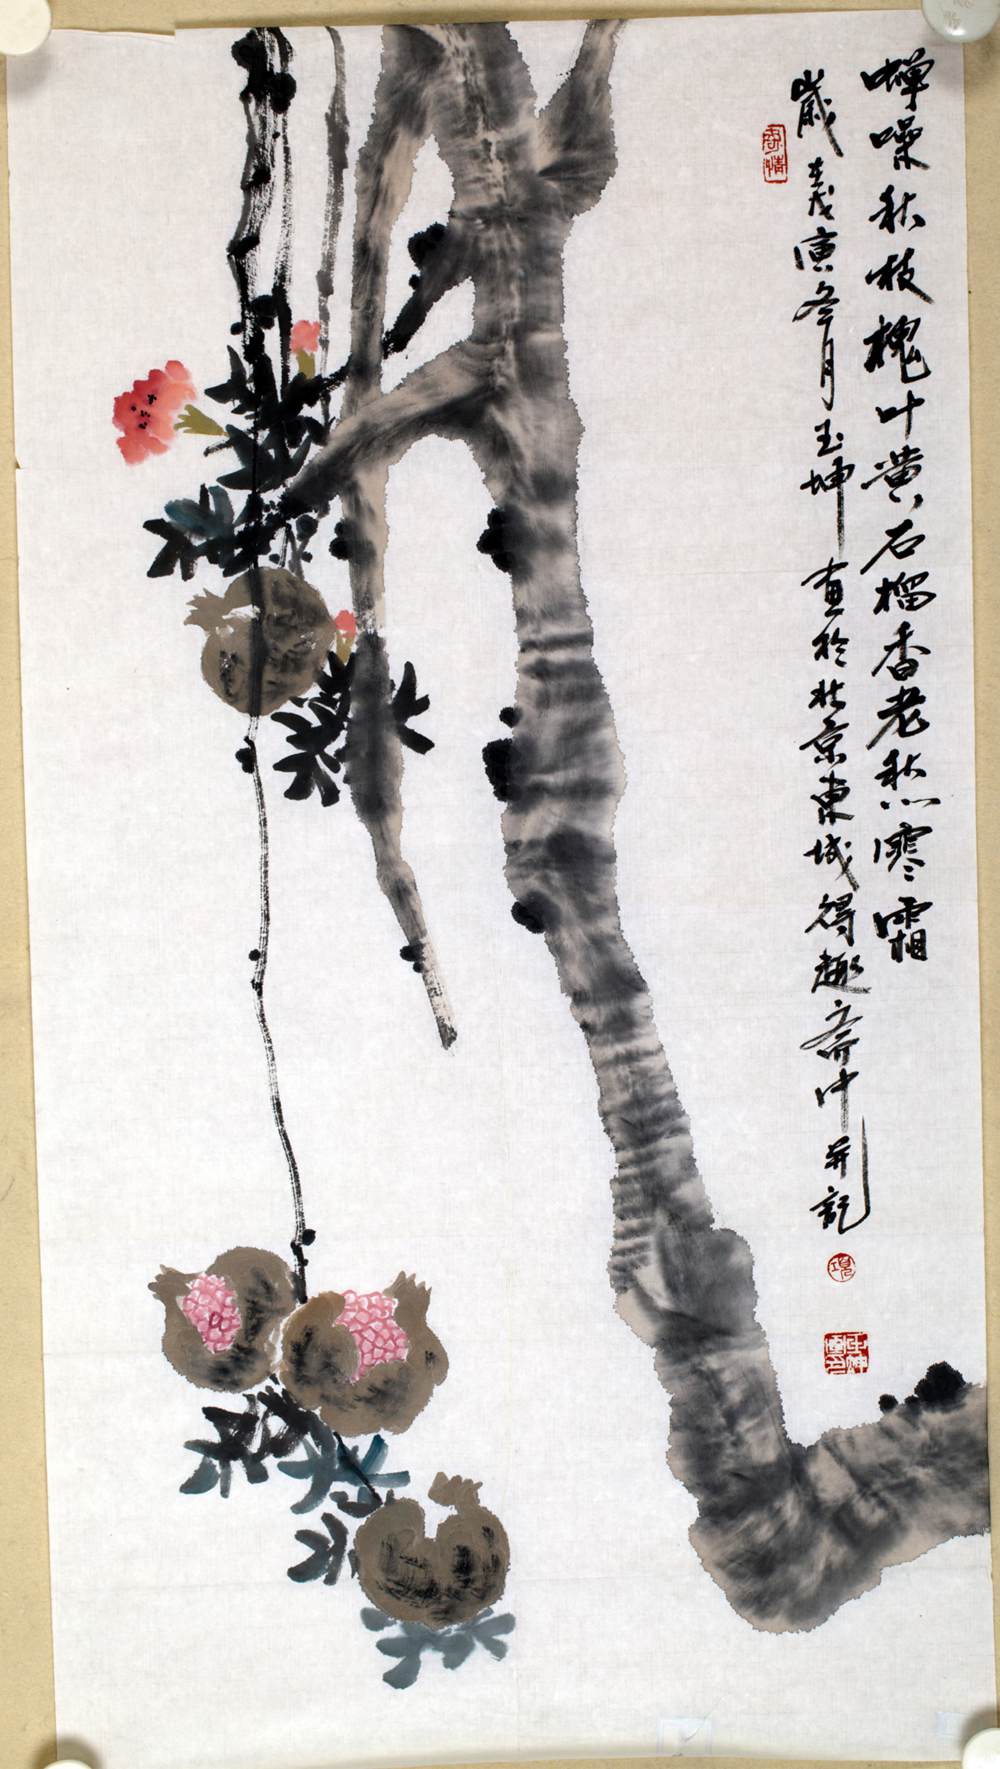 蝉噪秋枝槐叶黄石榴香老愁寒霜
岁在戊寅冬月玉坤画於北京东城得趣斋中并记